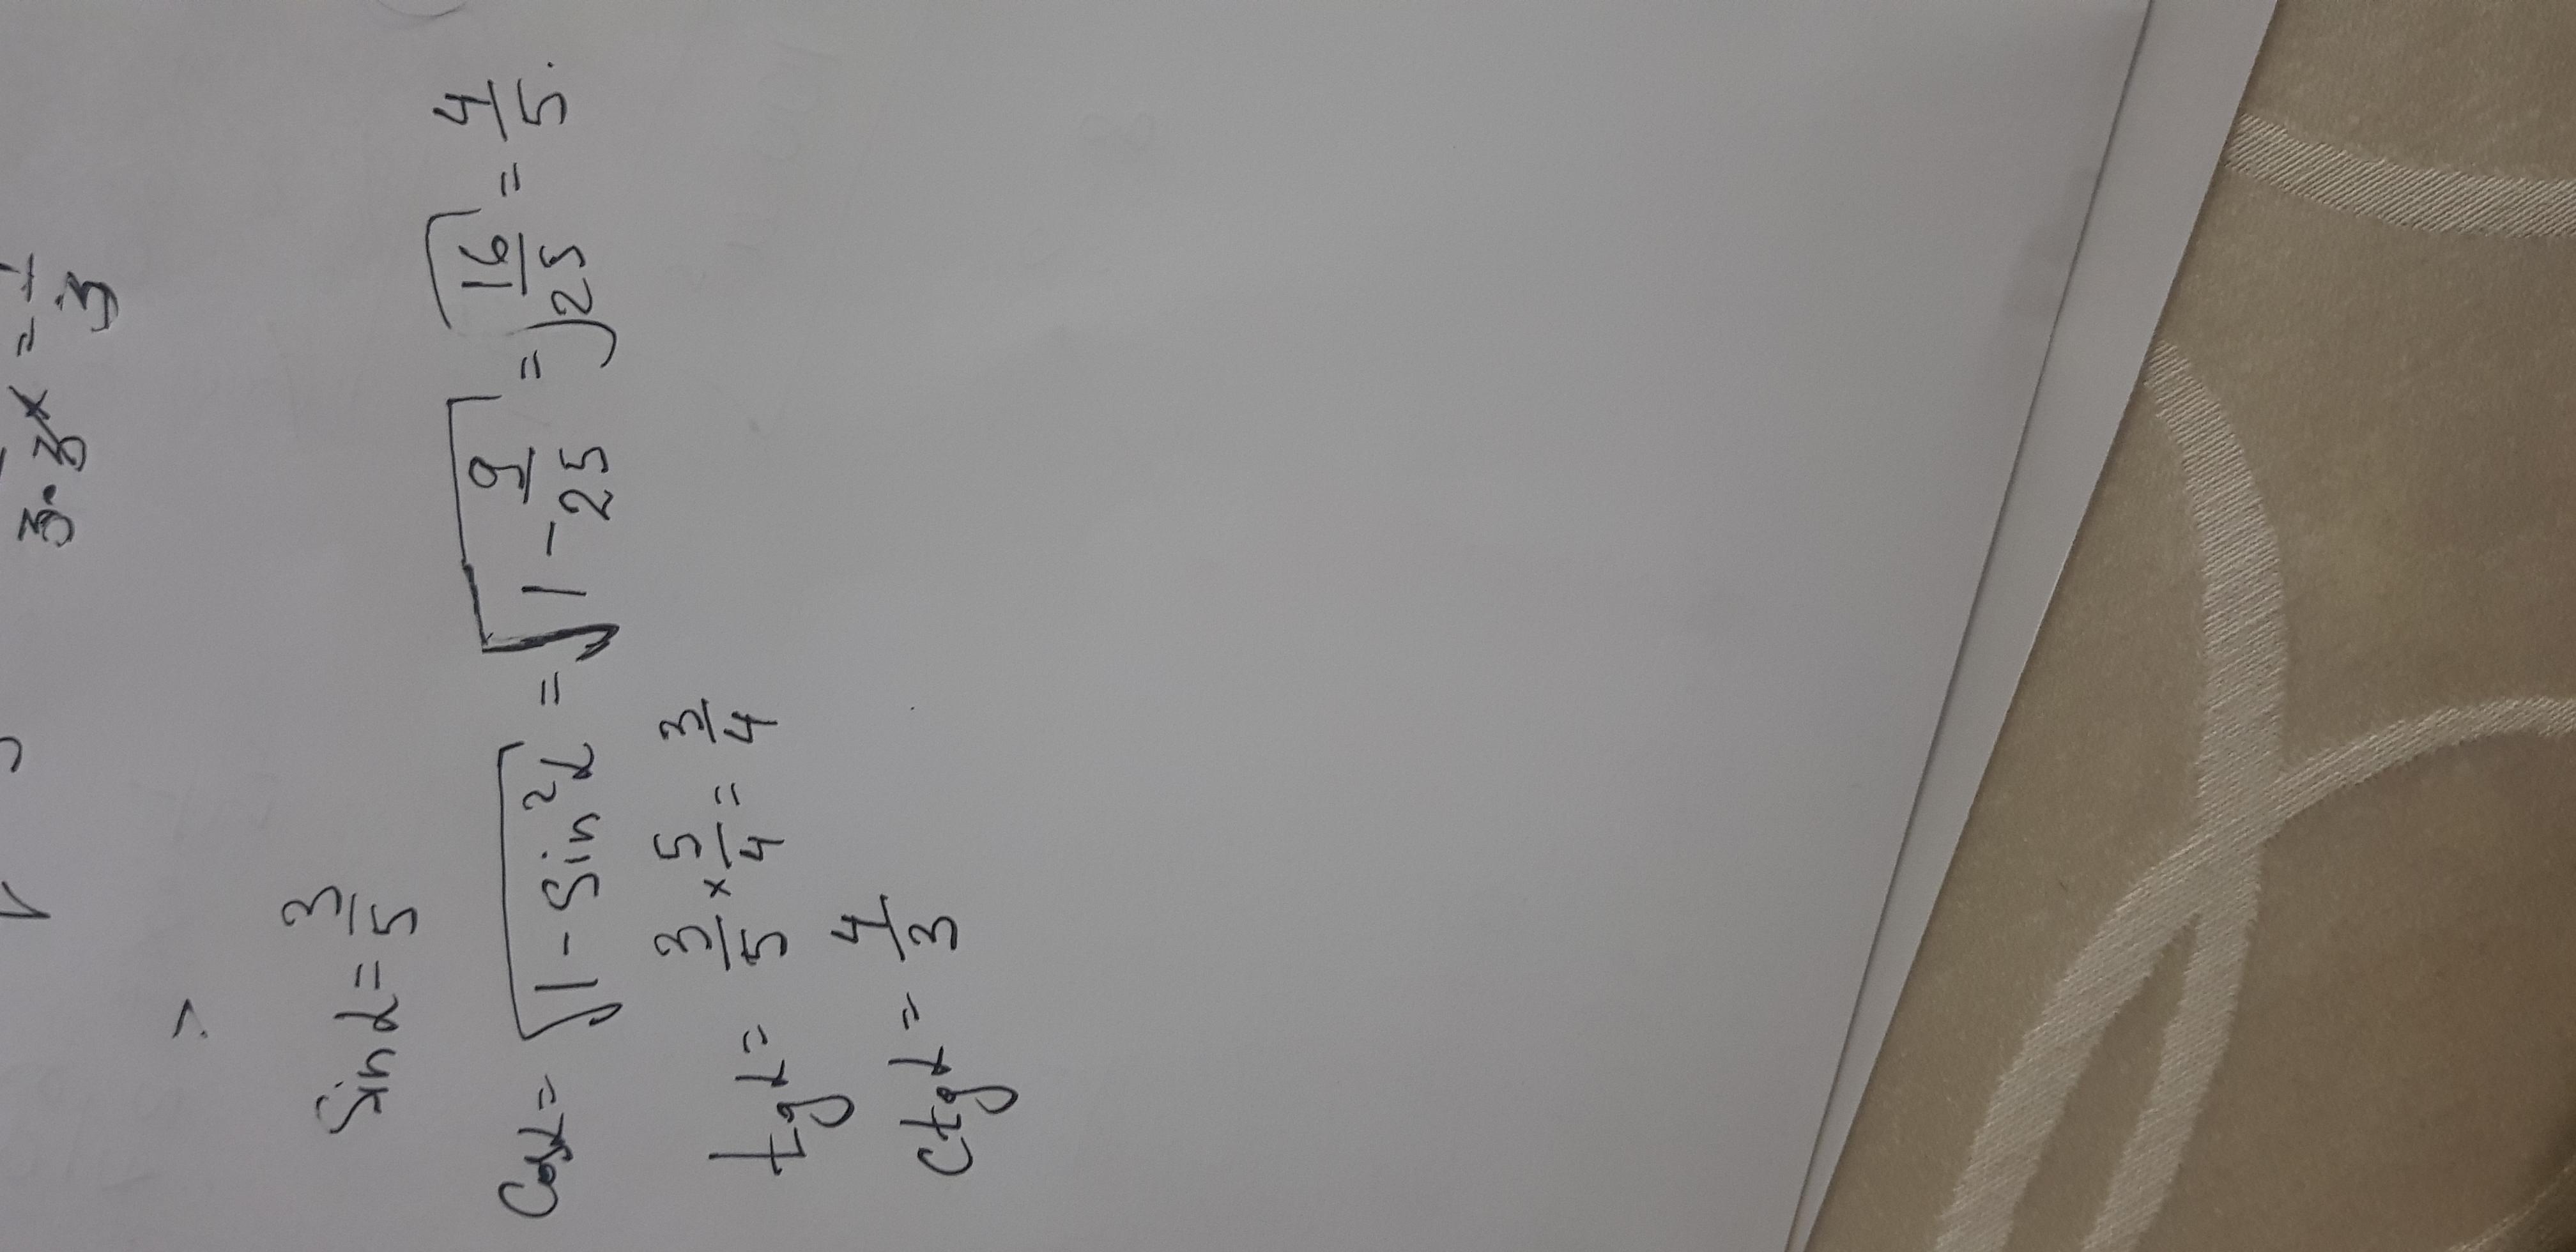 3·3x = 1/3
sin α = 3/5
Cosα = √(1 - sin²α) = √(1 - 9/25) = √(16/25) = 4/5.
tg α = 3/5 × 5/4 = 3/4
ctg α = 4/3